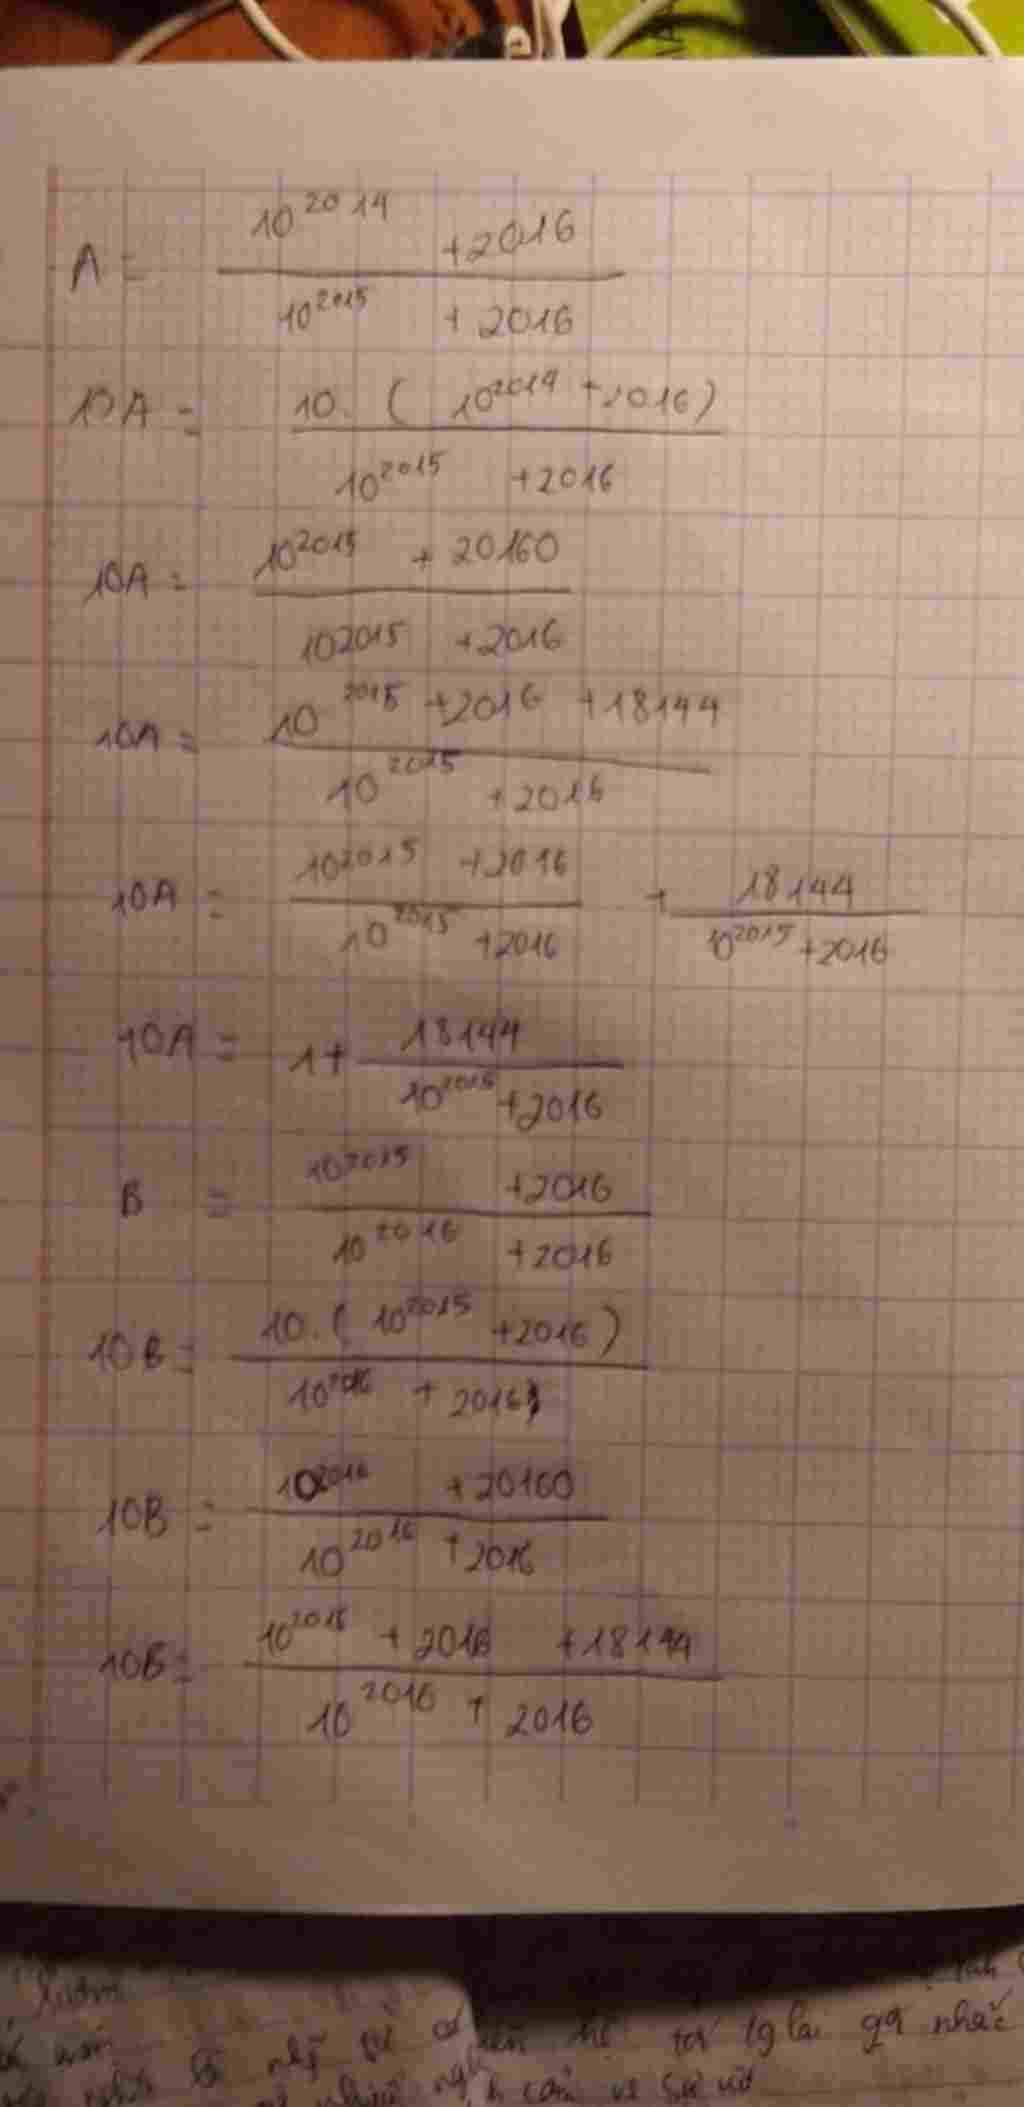 A = \frac{10^{2014} + 2016}{10^{2015} + 2016}
10A = \frac{10 \cdot (10^{2014} + 2016)}{10^{2015} + 2016}
10A = \frac{10^{2015} + 20160}{10^{2015} + 2016}
10A = \frac{10^{2015} + 2016 + 18144}{10^{2015} + 2016}
10A = \frac{10^{2015} + 2016}{10^{2015} + 2016} + \frac{18144}{10^{2015} + 2016}
10A = 1 + \frac{18144}{10^{2015} + 2016}
B = \frac{10^{2015} + 2016}{10^{2016} + 2016}
10B = \frac{10 \cdot (10^{2015} + 2016)}{10^{2016} + 2016}
10B = \frac{10^{2016} + 20160}{10^{2016} + 2016}
10B = \frac{10^{2016} + 2016 + 18144}{10^{2016} + 2016}